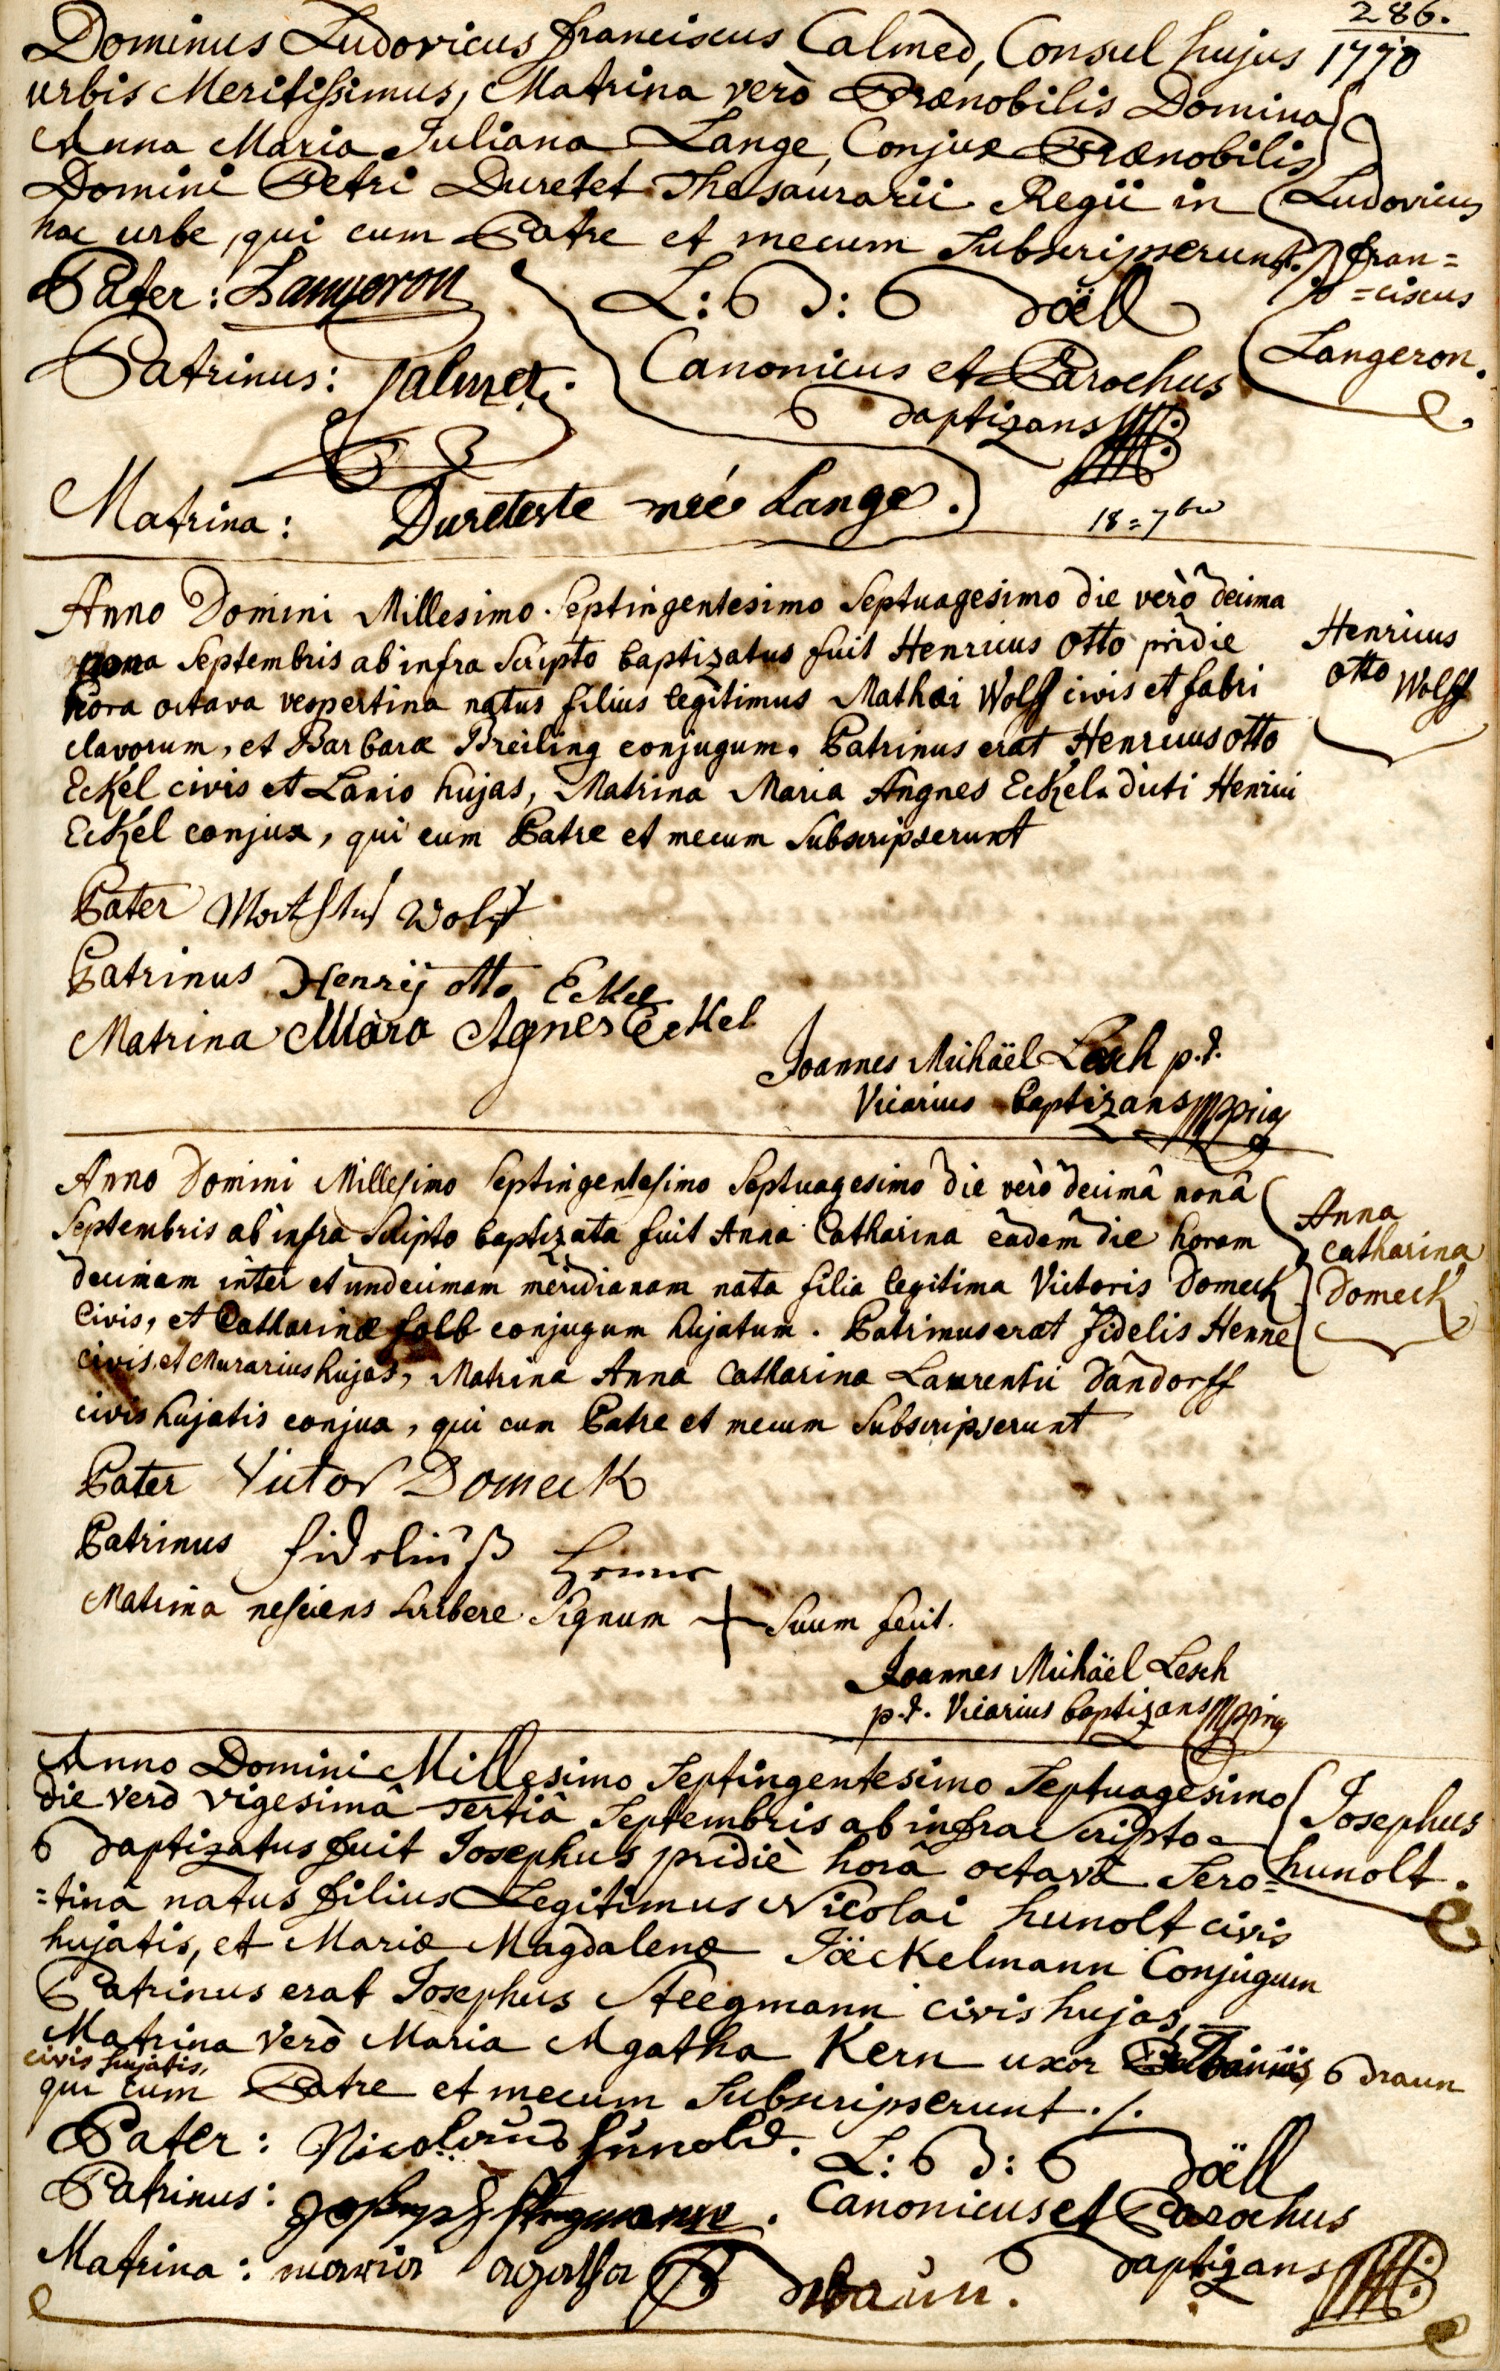 286.
Dominus Ludovicus franciscus Calmed, Consul hujus 1770
urbis Meritissimus, Matrina verò Prænobilis Domina
Anna Maria Juliana Lange, Conjux Prænobilis
Domini Petri Duretet Thesaurarii Regii in
hac urbe, qui cum Patre et mecum Subscripserunt.
Ludovicus
fran=
=ciscus
Langeron.
Pater: Langeron
L: B: Böell
Patrinus: Calmet.
Canonicus et Parochus
Baptizans
Matrina: Dureteste neé Lange.
18=7bre
Anno Domini Millesimo Septingentesimo Septuagesimo die verò decima
nona Septembris ab infra Scripto baptizatus fuit Henricus Otto pridie
hora octava vespertina natus filius legitimus Mathæi Wolff civis et fabri
clavorum, et Barbaræ Breiling conjugum. Patrinus erat Henricus Otto
Eckel civis et Lanio hujas, Matrina Maria Angnes Eckel dicti Henrici
Eckel conjux, qui cum Patre et mecum Subscripserunt
Henricus
Otto Wolff
Pater Wolff
Patrinus Henrij otto Eckel
Matrina Maria Agnes Eckel
Joannes Michäel Lesch p.t.
Vicarius baptizans mppria
Anno Domini Millesimo Septingentesimo Septuagesimo die verò decimâ nonâ
Septembris ab infra Scripto baptizata fuit Anna Catharina eâdem die horam
decimam inter et undecimam meridianam nata filia legitima Victoris Domeck
Civis, et Catharinæ folb conjugum hujatum. Patrinus erat fidelis Henne
civis et Murarius hujas, Matrina Anna Catharina Laurentii Dandorff
civis hujatis conjux, qui cum Patre et mecum Subscripserunt
Anna
Catharina
Domeck
Pater Victor Domeck
Patrinus fideliuß Henne
Matrina nesciens scribere Signum + Suum fecit.
Joannes Michäel Lesch
p.t. Vicarius baptizans mppria
Anno Domini Millesimo Septingentesimo Septuagesimo
die verò vigesimâ tertiâ Septembris ab infra Scripto
Baptizatus fuit Josephus pridiè horâ octavâ Sero=
=tinâ natus filius Legitimus Nicolai hunolt civis
hujatis, et Mariæ Magdalenæ Jäeckelmann Conjugum
Patrinus erat Josephus Steegmann civis hujas,
Matrina verò Maria Agatha Kern uxor Braun
civis hujatis,
qui cum Patre et mecum Subscripserunt./.
Josephus
hunolt.
Pater: Nicolaus hunold.
L: B: Böell
Patrinus: Joseph Stegmann.
Canonicus et Parochus
Matrina: maria agatha Braun.
Baptizans